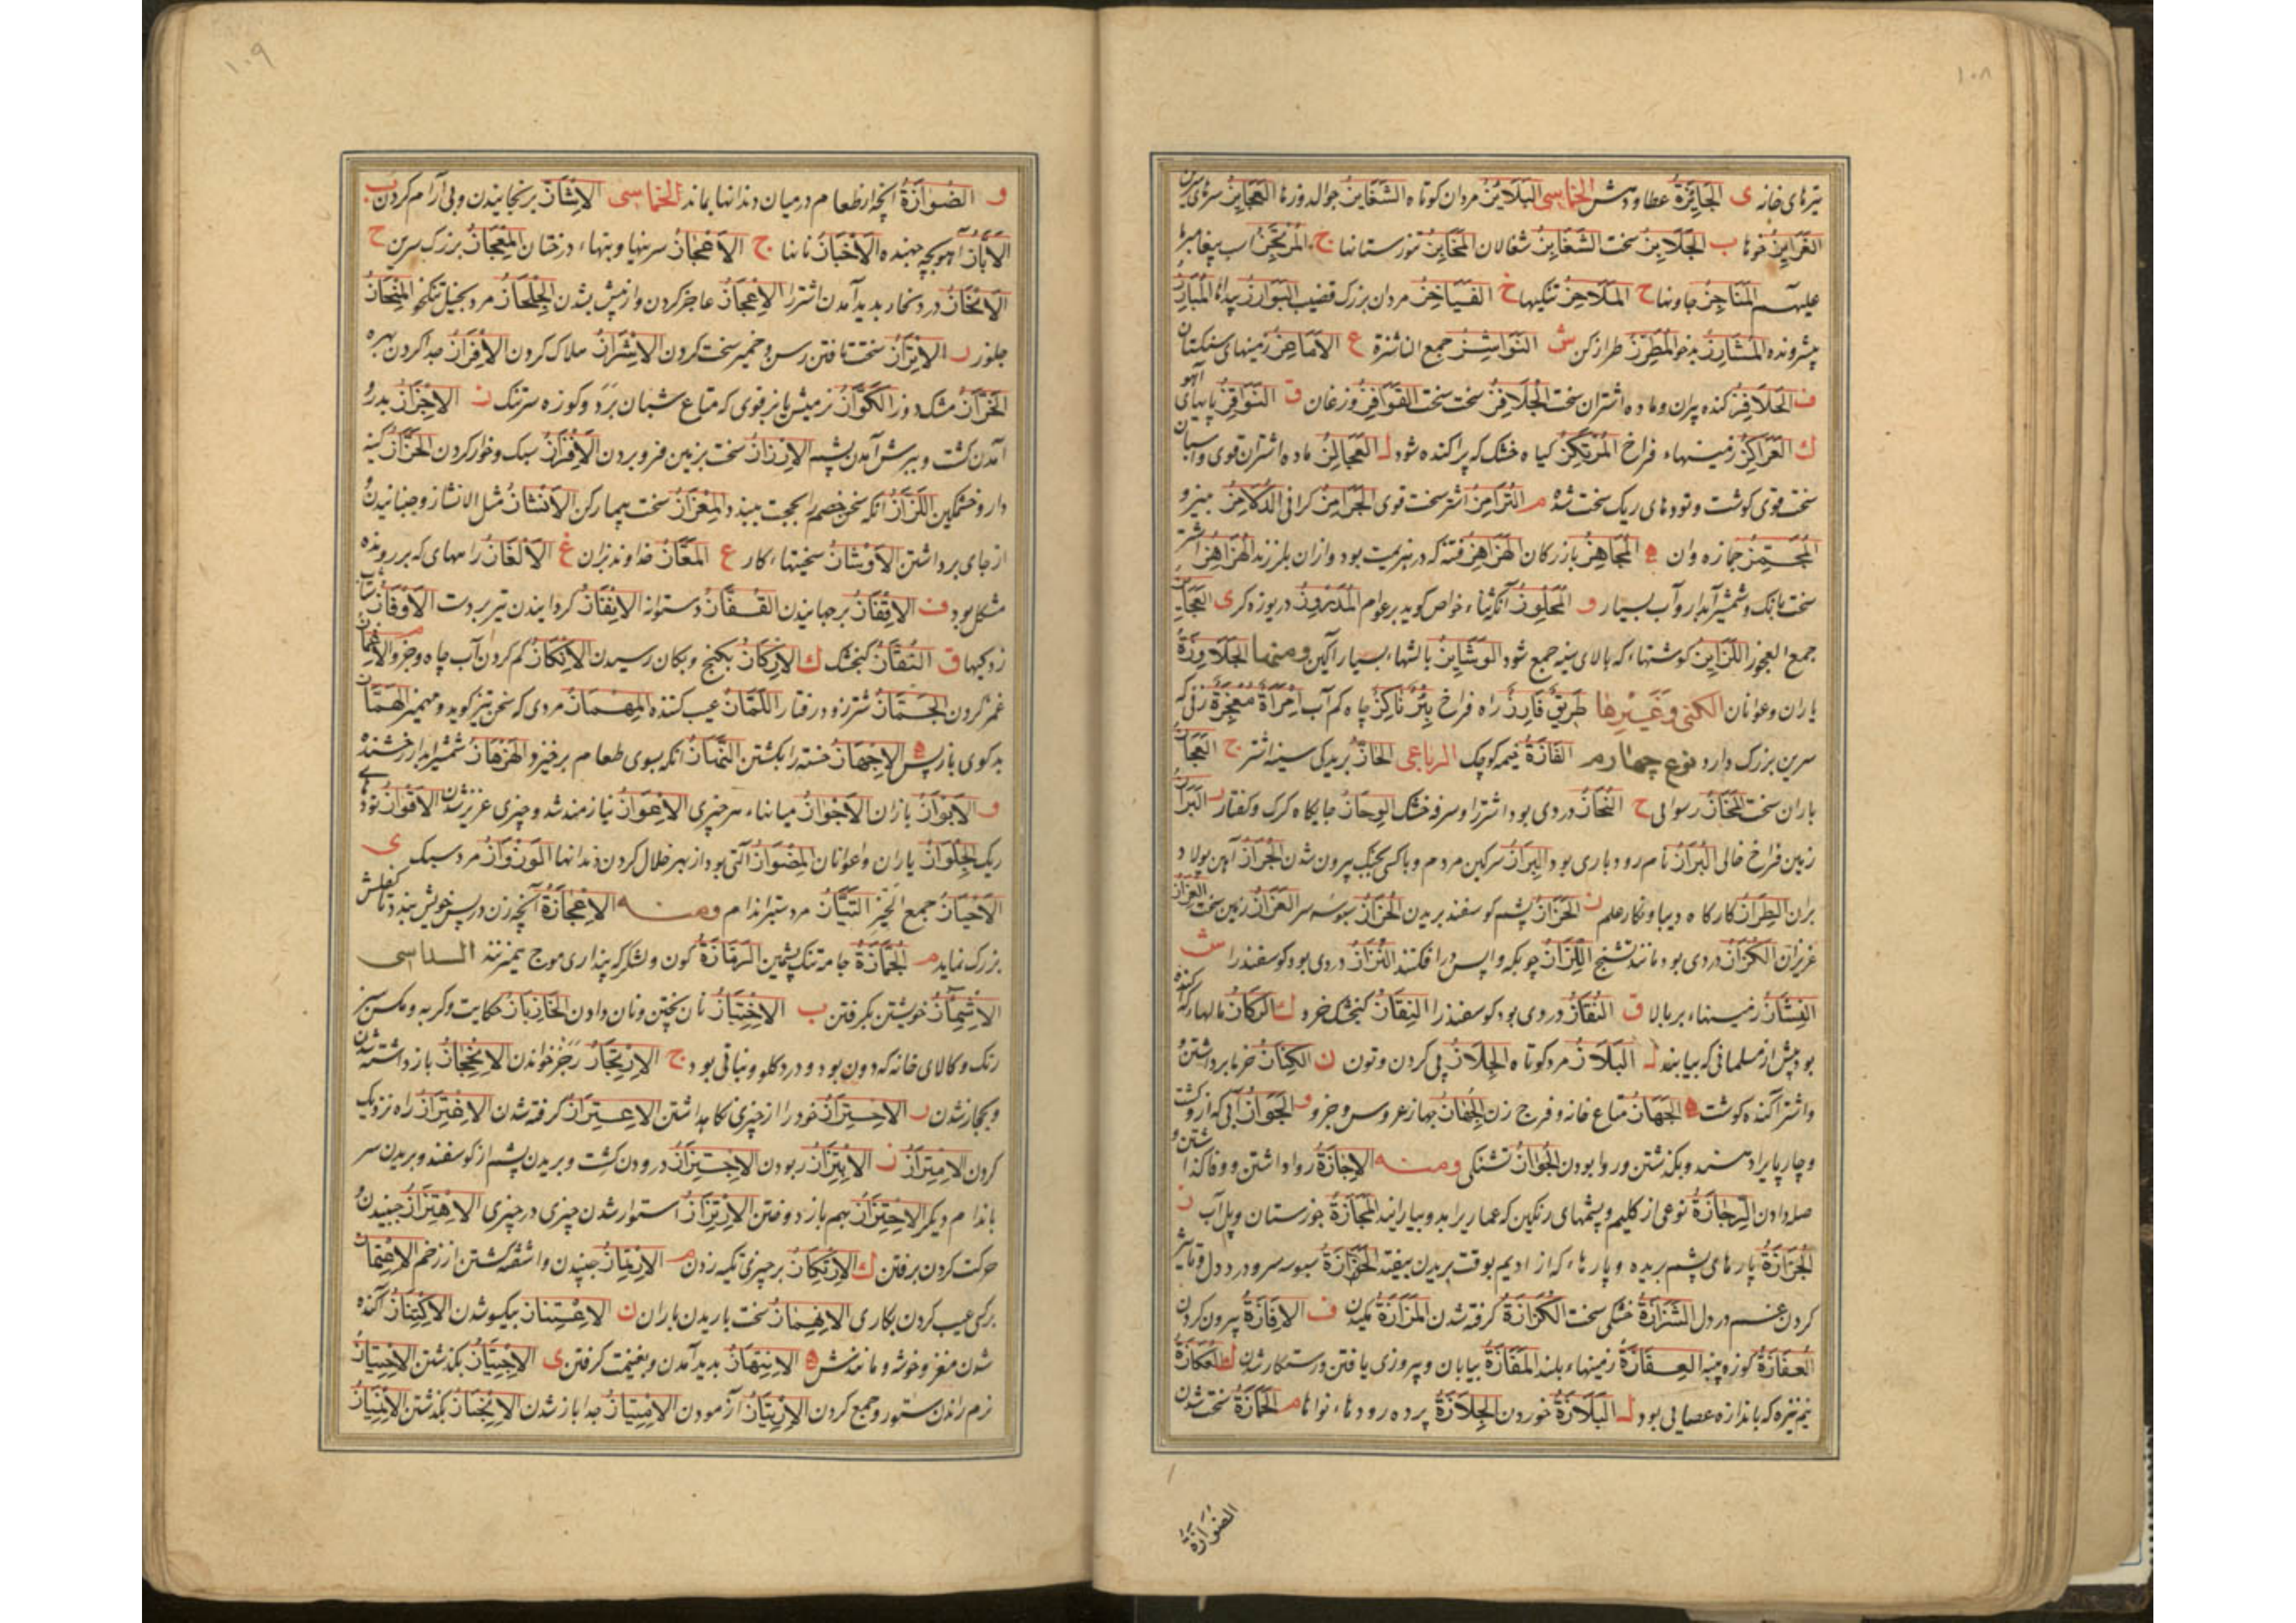 ۱۰۸
تیرهای خانه ی الجَایِزَةُ عطا و دهش الخماسی البَلَایِزُ مردان کوتاه الشَغَایِزُ جوالدوزها العَجَایِزُ
الغَرَایِزُ خوها ب الجَلَابِزُ سخت الشَغَابِزُ شغالان المَخَابِزُ تنورستانها ج المُرتَجِزُ اسپ پیغامبر
علیه المَنَاجِزُ ح المَلَاحِزُ تنگیها خ الفَیَاخِزُ مردان بزرگ قضیب البَوَارِزُ المُبَارِزُ
پیش رونده المُشَارِزُ بدخو المُطَرِّزُ طراز کن ش النَوَاشِزُ جمع الناشزة ع الأَمَاعِزُ زمینهای سنگستان
ف الجَلَافِزُ کنده پیران و ماده اشتران سخت الجُلَافِزُ سخت القَوَافِزُ وزغان ق النَوَاقِزُ پایهای آهو
ك العَرَاكِزُ زمینهاء فراخ المُرتَكِزُ گیاه خشک که پراکنده شود ل العَجَالِزُ ماده اشتران قوی واسپان
سخت قوی گوشت و تودهای ریک سخت شده م التُرَامِزُ اشتر سخت قوی الجَرَامِزُ الدُلَامِزُ
المُجَمِّزُ جمازه وان ه المُجَاهِزُ بازرگان الهَزَاهِزُ فتنه که در هزیمت بود وازان بلرزند الهُزَاهِزُ اشتر
سخت بانک و شمشیر آبدار و آب بسیار و المُحَلوِزُ المُدَروِزُ دریوزه گر ی العَجَایِزُ
جمع العجوز اللَزَایِزُ گوشتهاء که بالای سینه جمع شود الوَشَایِزُ بالشهاء بسیار آگین ومنها الجَلَاوِزَةُ
یاران و عوانان الکنی وغیرها طَرِیقٌ فَارِزٌ راه فراخ بِئرٌ نَاكِزٌ چاه کم آب اِمرَأةٌ مُعجِزَةٌ زنی که
سرین بزرگ دارد نوع چهارم الفَازَةُ خیمه کوچک الرباعی الحَازُّ بریدگی سینه اشتر ج
باران سخت رسوایی ح النُحَازُ دردی بود اشتر را و سرفه خشک الوِجَازُ جایگاه کرک و کفتار ر البَرَازُ
زمین فراخ خالی البُرَازُ نام رودباری بود البِرَازُ سرگین مردم و با کسی بجنگ بیرون شدن الجُرَازُ آهن پولاد
بران الطِرَازُ کارگاه دیبا و نگار علم ز الجَزَازُ پشم گوسفند بریدن الحَزَازُ سبوسه سر العَزَازُ زمین سخت العِزَازُ
عزیزان الكُزَازُ دردی بود مانند تشنج اللِزَازُ چوبکه واپس در افکنند النُزَازُ دردی بود گوسفند را ش
النِشَازُ زمینهاء بر بالا ق النُقَازُ دردی بود گوسفند را النِقَازُ گنجشک خرد ك الرِكَازُ مالها که
بود پیش از مسلمانی که بیابند ل البَلَازُ مرد کوتاه الجِلَازُ پی کردن و تون ن الكِنَازُ خرما برداشتن
واشتر آگنده گوشت ه الجَهَازُ متاع خانه و فرج زن الجِهَازُ جهاز عروس و جزو و الجَوَازُ آبی که از و کشت
و چارپا یرا دهند و بگذشتن و روا بودن الجُوَازُ تشنگی ومنه الإجَازَةُ روا داشتن و
صله دادن الرِجَازَةُ نوعی از گلیم و پشمهای رنگین که عماری را بدو بیارایند المَجَازَةُ جوزستان و پل آب ز
الجُزَازَةُ پارهای پشم بریده و پارهاء که از ادیم بوقت بریدن بیفتد الحَزَازَةُ سبوسه سر و درد دل
کردن غم در دل الشَزَازَةُ خشکی سخت الكَزَازَةُ گرفته شدن المَزَازَةُ ف الإفَازَةُ بیرون کردن
العُفَازَةُ گوزه پنبه العِفَازَةُ زمینهاء بلند المَفَازَةُ بیابان و پیروزی یافتن ورستگار شدن ك العُكَازَةُ
نیم نیزه که باندازه عصایی بود ل البَلَأزَةُ خوردن الجِلَازَةُ پرده رودهاء نواها م الحَمَازَةُ سخت شدن
الضُوَازَةُ
۱۰۹
و الضُوَازَةُ آنچه از طعام در میان دندانها بماند الخماسی الإشَازُ برنجانیدن و بی آرام کردن ب
الأَبَّازُ آهو بچه جهنده الأَخبَازُ نانها ج الأَعجَازُ سرینها و بنهاء درختان المِعجَازُ بزرگ سرین ح
الإنحَازُ درد نحاز پدید آمدن اشتر را الإعجَازُ عاجز کردن و از پیش بشدن الجِلحَازُ مرد بخیل تنگخو المِنحَازُ
جلوز ر الإترَازُ سخت تافتن رسن و خمیر سخت کردن الإشرَازُ هلاک کردن الإفرَازُ جدا کردن بهره
الخَرَّازُ مشک دوز الكَرَّازُ نر میش یا بز قوی که متاع شبان برد و کوزه سر تنک ز الإجزَازُ بدرو
آمدن کشت و ببرش آمدن پشم الإرزَازُ سخت بزمین فرو بردن الإفزَازُ سبک و خوار کردن الحَزَّازُ
دارو خشمگین اللَزَّازُ آنکه سخن خصم را بحجت ببندد المِعزَازُ سخت بیمار ش الإنشَازُ مثل الانشاز و جنبانیدن
از جای برداشتن الأَوشَازُ سختیهاء کار ع المَعَّازُ خداوند بزان غ الأَلغَازُ راههای که بر رونده
مشکل بود ف الإقفَازُ برجهانیدن القُفَّازُ دستوانه الإنفَازُ گردانیدن تیر بر دست الأَوفَازُ شتاب
زدگیها ق النَقَّازُ گنجشک ك الإركَازُ بگنج و بکان رسیدن الإنكَازُ کم کردن آب چاه و جزو
غمز کردن الجَمَّازُ شتر زود رفتار اللَمَّازُ عیب کننده المِهمَازُ مردی که سخن تیز گوید و مهمیز الهَمَّازُ
بدگوی باز پس ه الإجهَازُ خسته را بکشتن النَهَّازُ آنکه بسوی طعام برخیزد الهَزهَازُ شمشیر آبدار رخشنده
و الأَبوَازُ بازان الأَجوَازُ میانهاء هر چیزی الإعوَازُ نیازمند شد و چیزی عزیز شدن الأَقوَازُ تودهای
ریک الجِلوَازُ یاران و اعوانان المِضوَازُ آلتی بود از بهر خلال کردن دندانها الوَزوَازُ مرد سبک ی
الأَحیَازُ جمع الحیز التَیَّازُ مرد ستبر اندام ومنه الإعجَازَةُ آنچه زن در پس خویش بندد تا کفلش
بزرگ نماید م الجُمَّازَةُ جامه تنگ پشمین الرَمَّازَةُ کون و لشکر که پنداری موج میزنند السداسی
الاشمئزَازُ خویشتن بگرفتن ب الاختِبَازُ نان پختن و نان دادن الخَازِبَازُ حکایت و گربه و مگس سبز
رنک و کالای خانه که دون بود و درد گلو و نباتی بود ج الارتِجَازُ رجز خواندن الانحِجَازُ باز داشته شدن
و بحجاز شدن ر الاحتِرَازُ خود را از چیزی نگاه داشتن الاعتِرَازُ گرفته شدن الاغتِرَازُ راه نزدیک
کردن الامتِرَازُ ز الابتِزَازُ ربودن الاجتِزَازُ درودن کشت و بریدن پشم از گوسفند و بریدن سر
باندام دیگر الاحتِزَازُ بهم باز دوختن الارتِزَازُ استوار شدن چیزی در چیزی الاهتِزَازُ جنبیدن و
حرکت کردن برفتن ك الارتِكَازُ بر چیزی تکیه زدن م الارتِمَازُ جنبیدن و اشفته گشتن از زخم
بر کسی عیب کردن بکاری الانهِمَازُ سخت باریدن باران ن الاعتِنَازُ بیکسو شدن الاكتِنَازُ آگنده
شدن مغز و خوشه و مانندش ه الانتِهَازُ بدید آمدن و بغنیمت گرفتن ی الاجتِیَازُ بگذشتن الاحتِیَازُ
نرم راندن ستور و جمع کردن الارتِیَازُ آزمودن الامتِیَازُ جدا باز شدن الانحِیَازُ بگذشتن الانمِیَازُ